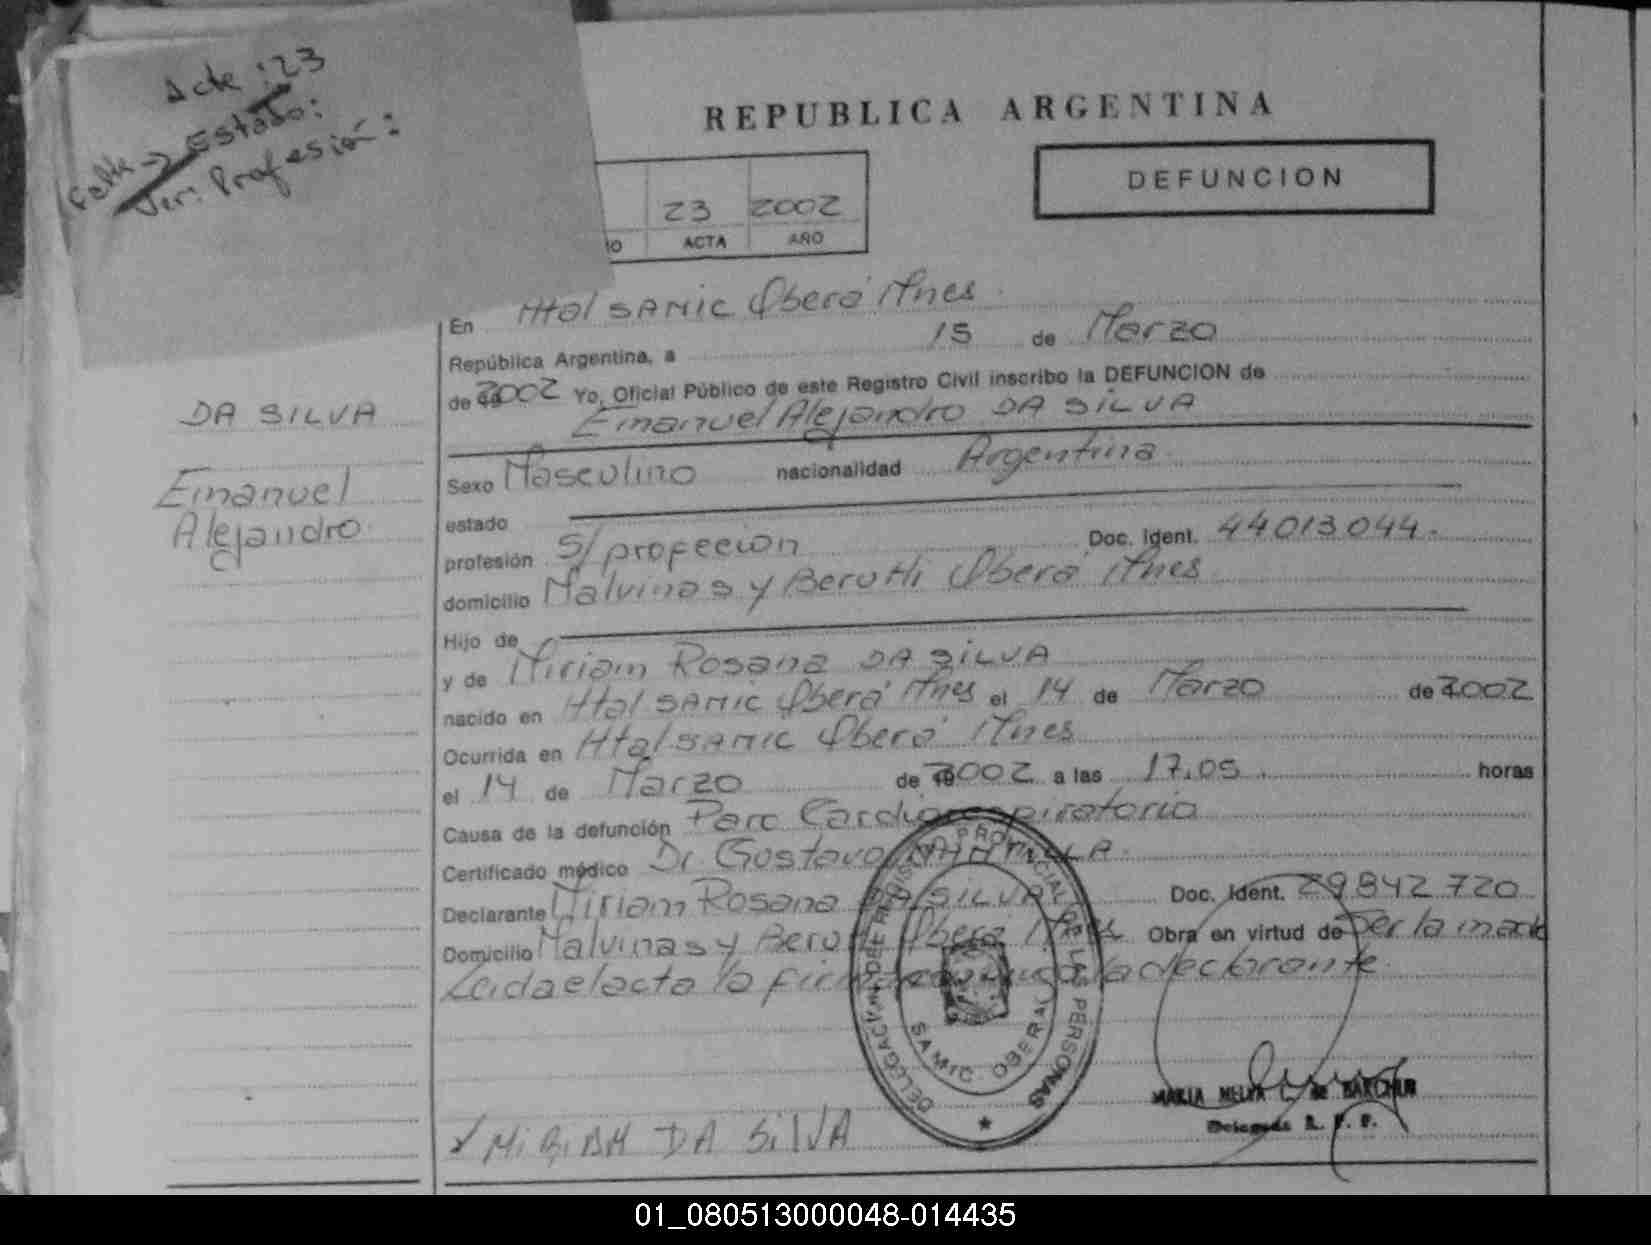 Acta : 23
Falta → Estado:
Ver: Profesión:
REPUBLICA ARGENTINA
DEFUNCION
23 2002
ACTA AÑO
DA SILVA
Emanuel
Alejandro
En Htal SAMIC Oberá Mnes
República Argentina, a 15 de Marzo
de 2002 Yo, Oficial Público de este Registro Civil inscribo la DEFUNCION de
Emanuel Alejandro DA SILVA
Sexo Masculino nacionalidad Argentina
estado
profesión S/profeción Doc. Ident. 44013.044.
domicilio Malvinas y Berutti Oberá Mnes
Hijo de
y de Miriam Rosana DA SILVA
nacido en Htal SAMIC Oberá Mnes el 14 de Marzo de 2002
Ocurrida en Htal SAMIC Oberá Mnes
el 14 de Marzo de 2002 a las 17.05 horas
Causa de la defunción Paro Cardiorespiratorio
Certificado médico Dr. Gustavo
Declarante Miriam Rosana DA SILVA Doc. Ident. 29.842.720
Domicilio Malvinas y Berutti Oberá Mnes Obra en virtud de Ser la madre
Leida el acta la firma conmigo la declarante.
DELEGACION DEL REGISTRO PROVINCIAL DE LAS PERSONAS
SAMIC. OBERA
MARIA NELIDA de
Delegada R. P. P.
MiRiAM DA SilVA
01_080513000048-014435